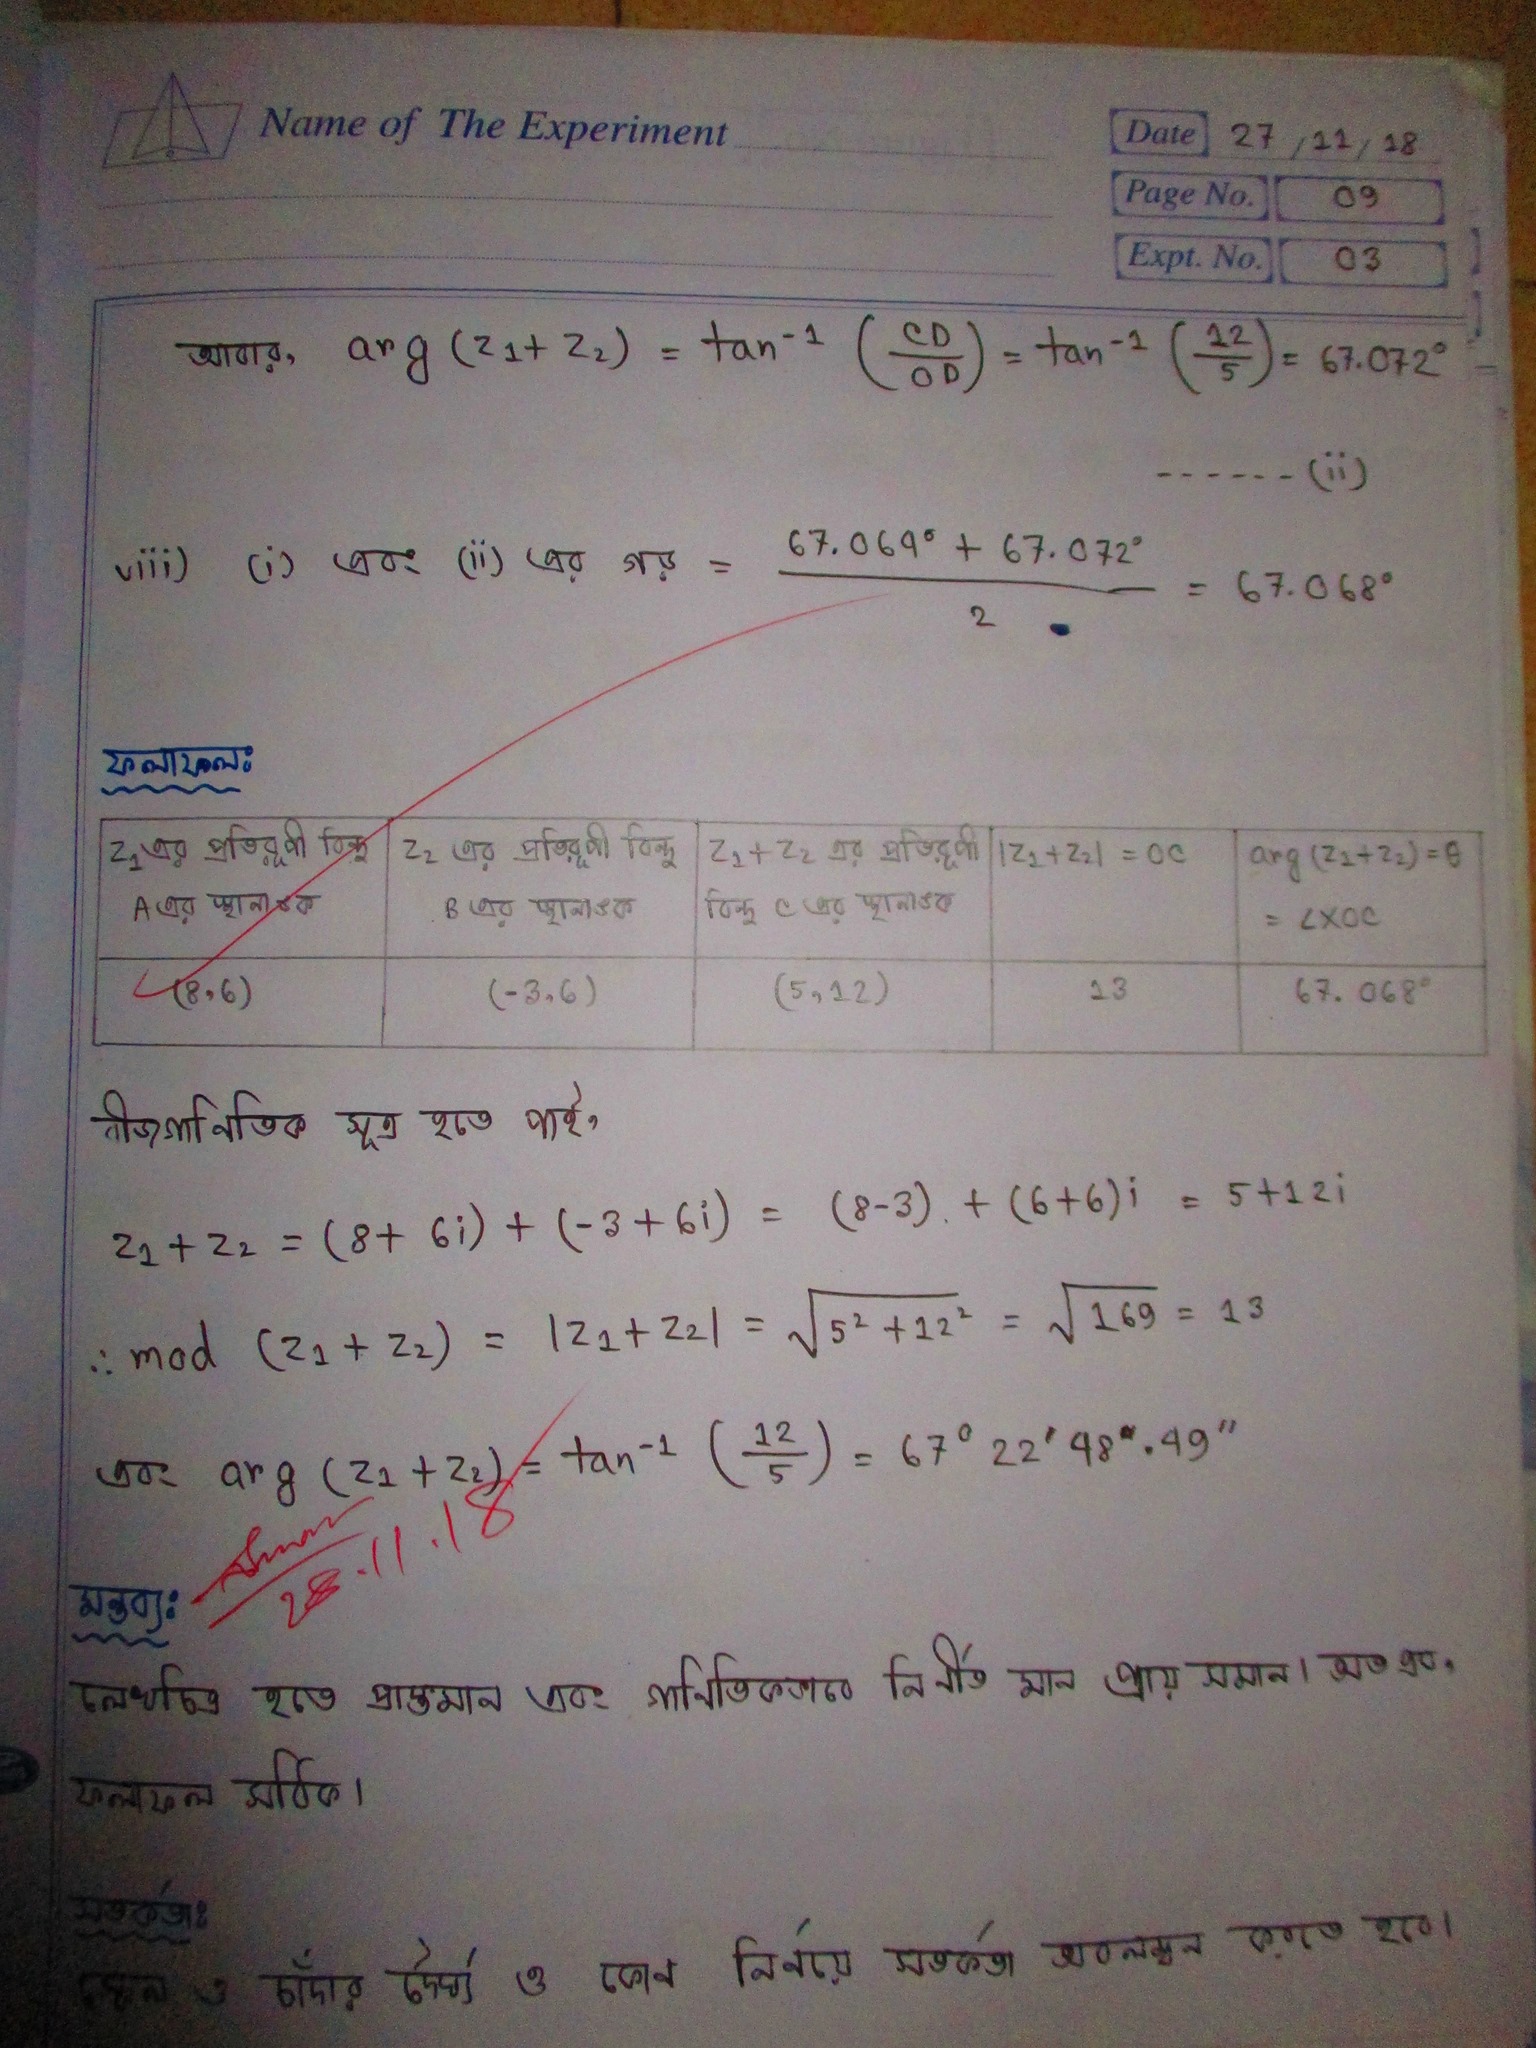 Name of The Experiment
Date 27/11/18
Page No. 09
Expt. No. 03
আবার, arg (z1 + z2) = tan-1 (CD/OD) = tan-1 (12/5) = 67.072°
------(ii)
viii) (i) এবং (ii) এর গড় = (67.064° + 67.072°)/2 = 67.068°
ফলাফলঃ
z1 এর প্রতিরূপী বিন্দু A এর স্থানাঙ্ক | z2 এর প্রতিরূপী বিন্দু B এর স্থানাঙ্ক | z1+z2 এর প্রতিরূপী বিন্দু C এর স্থানাঙ্ক | |z1+z2| = OC | arg (z1+z2) = θ = ∠XOC
(8,6) | (-3,6) | (5,12) | 13 | 67.068°
বীজগানিতিক সূত্র হতে পাই,
z1 + z2 = (8+ 6i) + (-3+6i) = (8-3) + (6+6)i = 5+12i
∴ mod (z1 + z2) = |z1 + z2| = √(5² + 12²) = √169 = 13
এবং arg (z1 + z2) = tan-1 (12/5) = 67° 22' 48".49"
28.11.18
মন্তব্যঃ
লেখচিত্র হতে প্রাপ্তমান এবং গানিতিকভাবে নির্নীত মান প্রায় সমান। অতএব,
ফলাফল সঠিক।
সতর্কতাঃ
স্কেল ও চাঁদার দৈর্ঘ্য ও কোন নির্নয়ে সতর্কতা অবলম্বন করতে হবে।